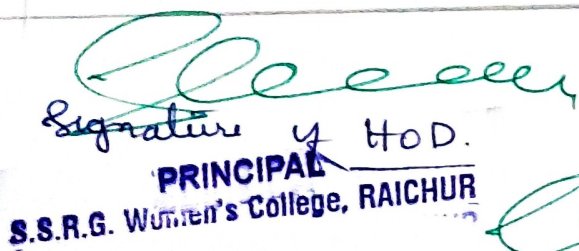 Signature of HOD.
PRINCIPAL
S.S.R.G. Women's College, RAICHUR